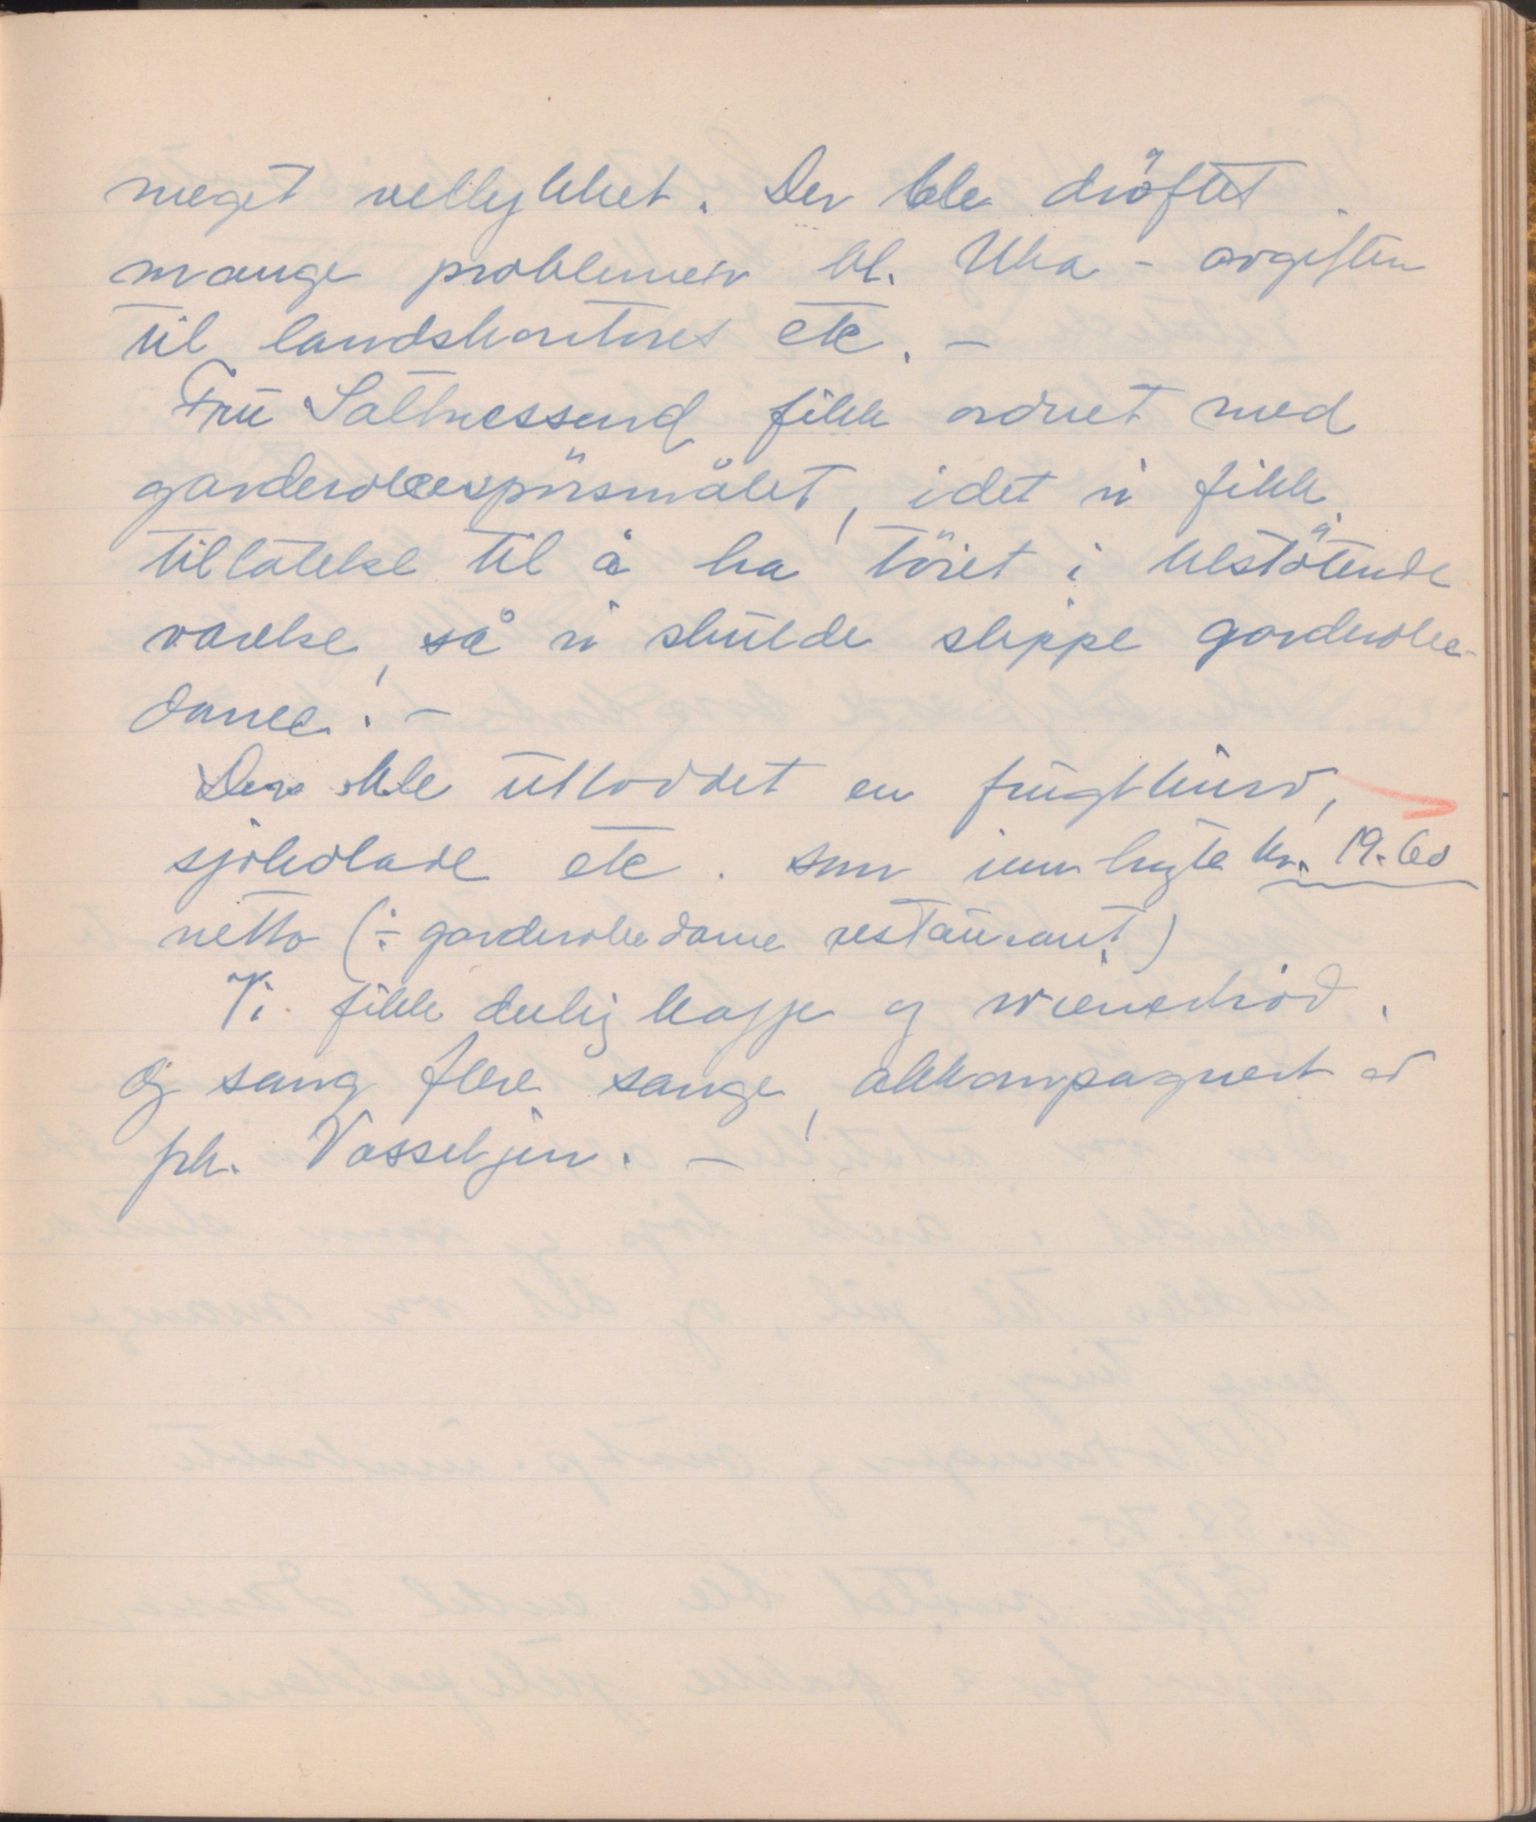 meget vellykket. Der ble drøftet
mange problemer bl. Uka - avgiften
til landskontoret etc. -
Fru Saltnessand fikk ordnet med
garderobespørsmålet, idet vi fikk
tillatelse til å ha tøiet i tilstøtende
værelse, så vi skulde slippe garderobe-
dame! -
Der ble utloddet en frugtkurv,
sjokolade etc. som innbragte kr. 19.60
netto (÷ garderobedame restaurant)
Vi fikk deilig kaffe og wienerbrød.
Og sang flere sange, akkompagnert av
frk. Vasseljen. -